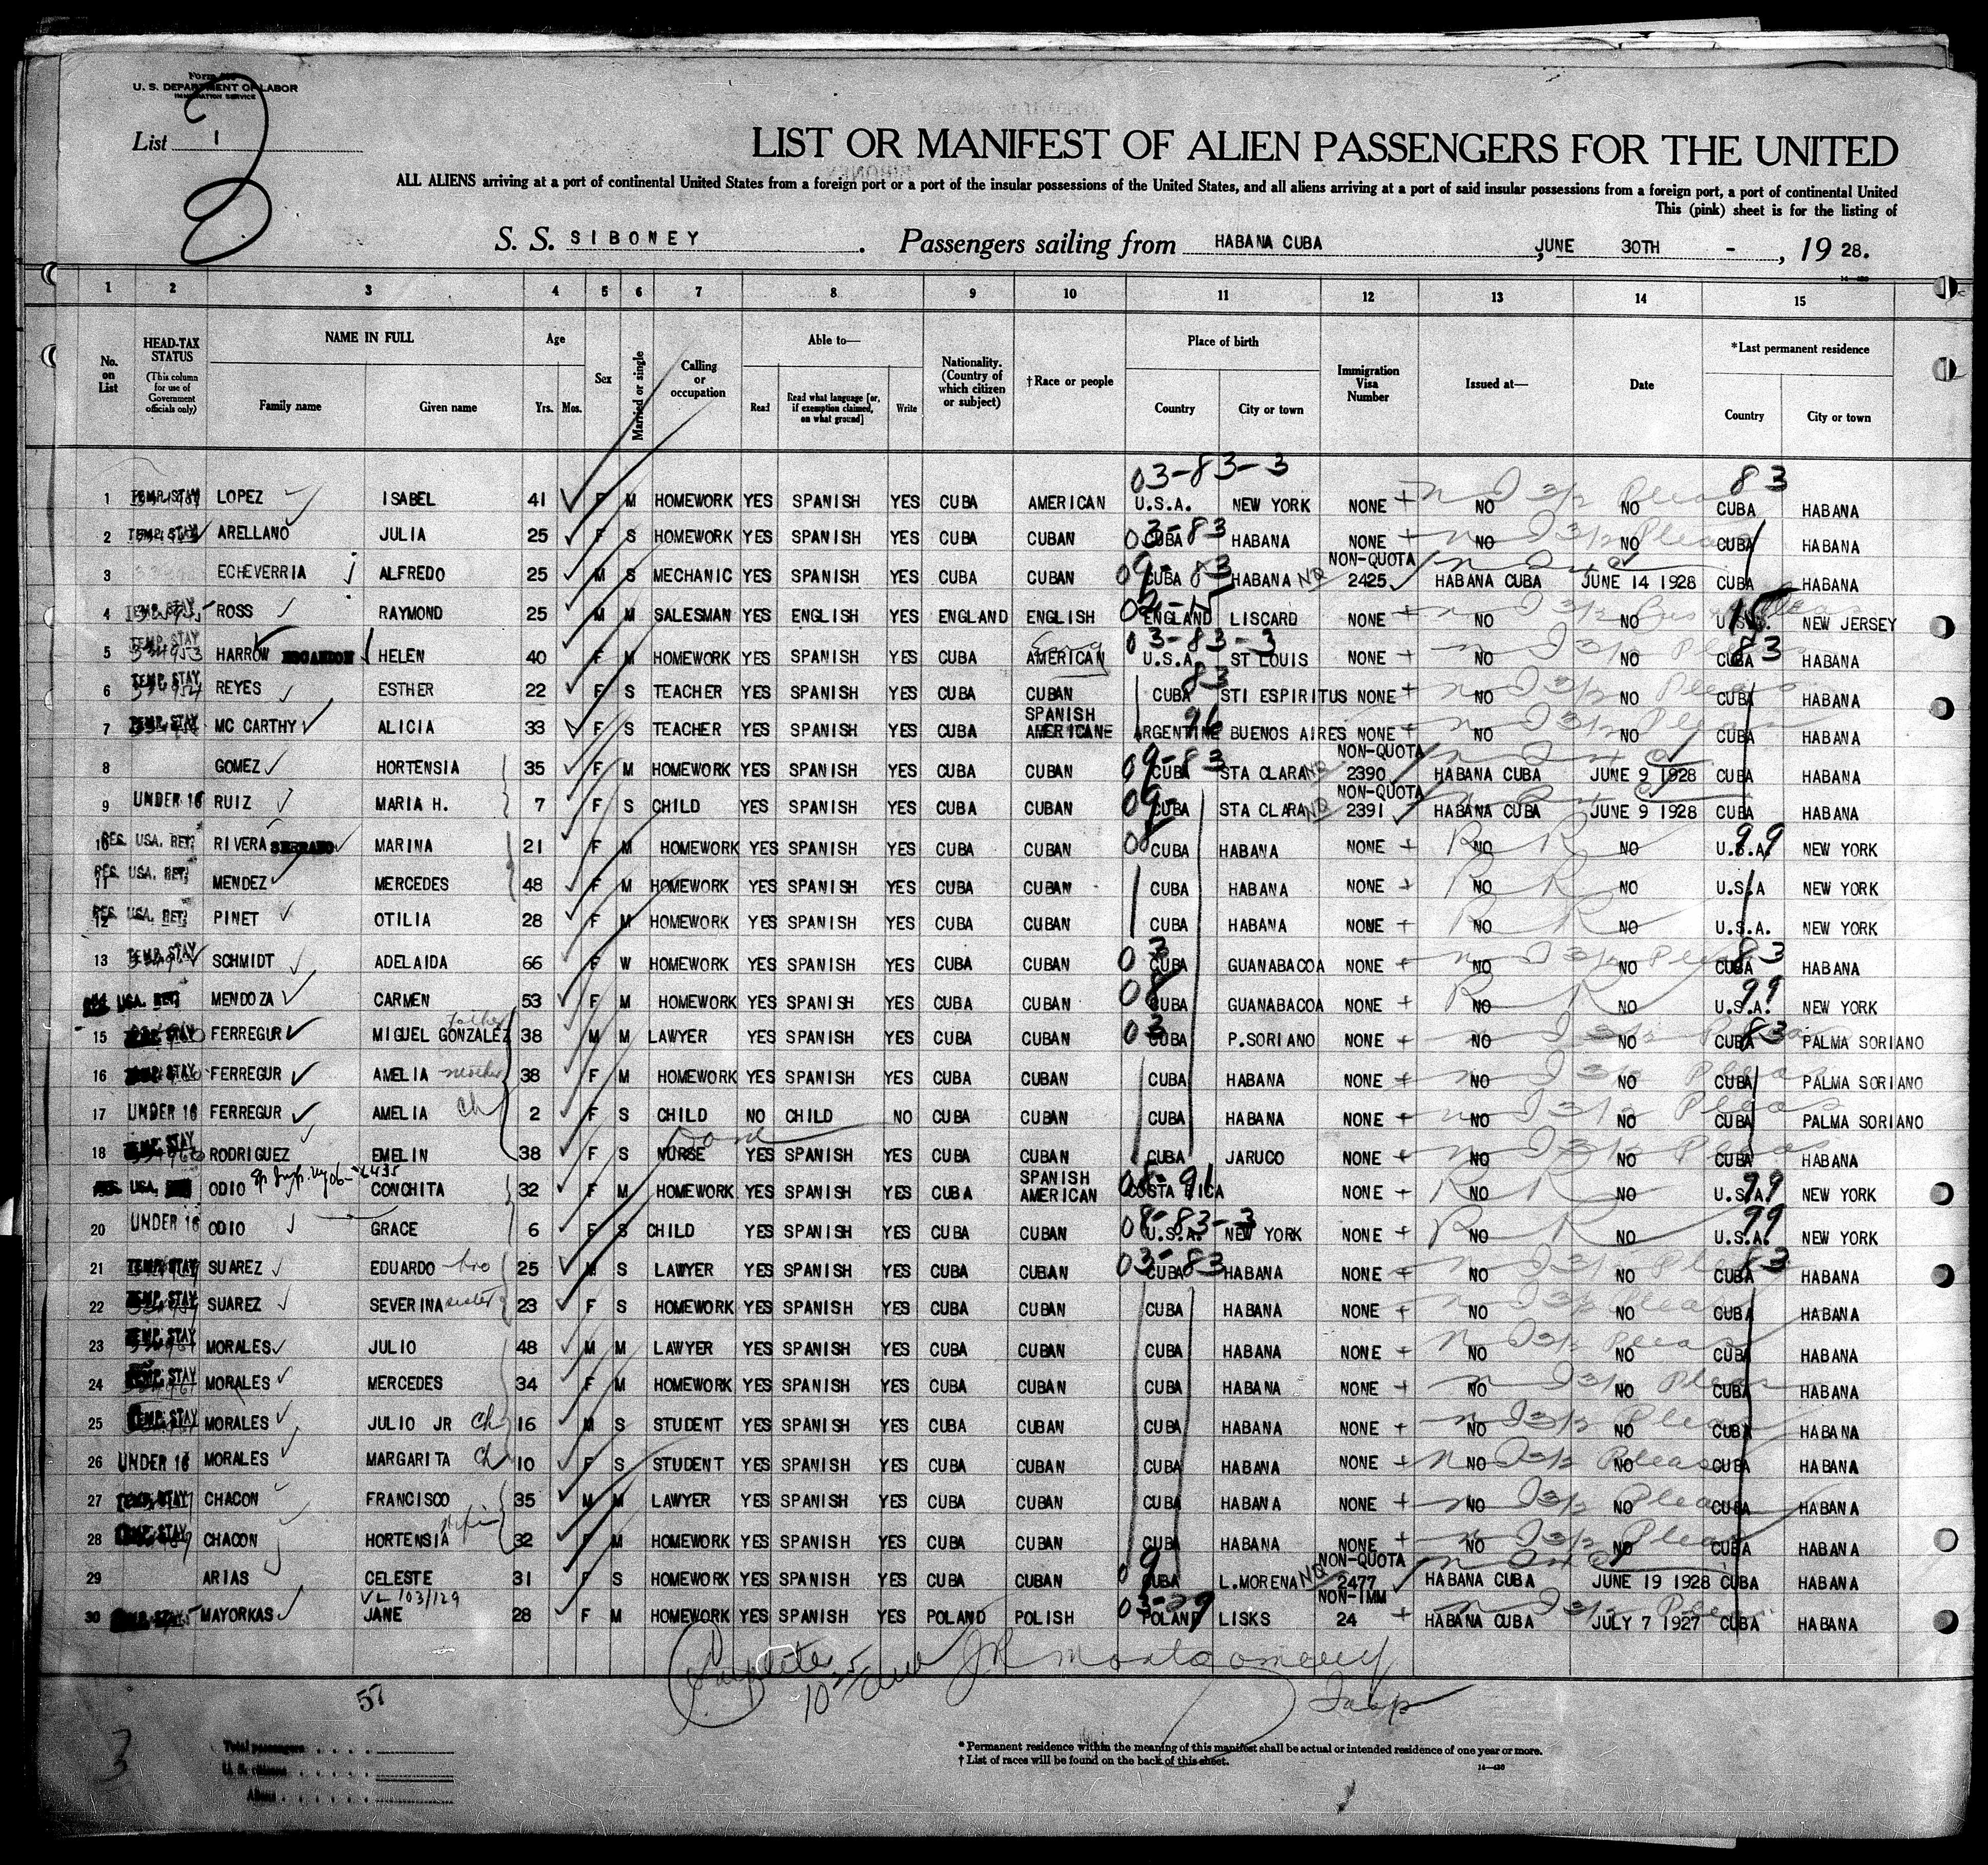 Form
U. S. DEPARTMENT OF LABOR
IMMIGRATION SERVICE
List 1
LIST OR MANIFEST OF ALIEN PASSENGERS FOR THE UNITED
ALL ALIENS arriving at a port of continental United States from a foreign port or a port of the insular possessions of the United States, and all aliens arriving at a port of said insular possessions from a foreign port, a port of continental United
This (pink) sheet is for the listing of
S. S. SIBONEY. Passengers sailing from HABANA CUBA, JUNE 30TH -, 19 28.
1 2 3 4 5 6 7 8 9 10 11 12 13 14 15
No. on List
HEAD-TAX STATUS (This column for use of Government officials only)
NAME IN FULL Family name Given name
Age Yrs. Mos.
Sex
Married or single
Calling or occupation
Able to— Read Read what language [or, if exemption claimed, on what ground] Write
Nationality. (Country of which citizen or subject)
† Race or people
Place of birth Country City or town
Immigration Visa Number
Issued at—
Date
*Last permanent residence Country City or town
03-83-3 83
1 TEMP. STAY LOPEZ ISABEL 41 F M HOMEWORK YES SPANISH YES CUBA AMERICAN U.S.A. NEW YORK NONE NO NO CUBA HABANA
2 TEMP. STAY ARELLANO JULIA 25 F S HOMEWORK YES SPANISH YES CUBA CUBAN 03-83 CUBA HABANA NONE NO NO CUBA HABANA
3 ECHEVERRIA ALFREDO 25 M S MECHANIC YES SPANISH YES CUBA CUBAN 09-83 CUBA HABANA NON-QUOTA 2425 HABANA CUBA JUNE 14 1928 CUBA HABANA
4 TEMP. STAY ROSS RAYMOND 25 M M SALESMAN YES ENGLISH YES ENGLAND ENGLISH ENGLAND LISCARD NONE NO NO NEW JERSEY
5 TEMP. STAY HARROW HELEN 40 F M HOMEWORK YES SPANISH YES CUBA AMERICAN 03-83-3 U.S.A. ST LOUIS NONE NO NO CUBA 83 HABANA
6 TEMP. STAY REYES ESTHER 22 F S TEACHER YES SPANISH YES CUBA CUBAN 83 CUBA STI ESPIRITUS NONE NO NO CUBA HABANA
7 TEMP. STAY MC CARTHY ALICIA 33 F S TEACHER YES SPANISH YES CUBA SPANISH AMERICANE ARGENTINE BUENOS AIRES NONE NO NO CUBA HABANA
8 GOMEZ HORTENSIA 35 F M HOMEWORK YES SPANISH YES CUBA CUBAN 09-83 CUBA STA CLARA NON-QUOTA 2390 HABANA CUBA JUNE 9 1928 CUBA HABANA
9 UNDER 16 RUIZ MARIA H. 7 F S CHILD YES SPANISH YES CUBA CUBAN 09- CUBA STA CLARA NON-QUOTA 2391 HABANA CUBA JUNE 9 1928 CUBA HABANA
10 RES. USA. RET. RIVERA MARINA 21 F M HOMEWORK YES SPANISH YES CUBA CUBAN 08 CUBA HABANA NONE NO NO U.S.A. 99 NEW YORK
11 RES. USA. RET. MENDEZ MERCEDES 48 F M HOMEWORK YES SPANISH YES CUBA CUBAN CUBA HABANA NONE NO NO U.S.A NEW YORK
12 RES. USA. RET. PINET OTILIA 28 F M HOMEWORK YES SPANISH YES CUBA CUBAN CUBA HABANA NONE NO NO U.S.A. NEW YORK
13 TEMP. STAY SCHMIDT ADELAIDA 66 F W HOMEWORK YES SPANISH YES CUBA CUBAN 03 CUBA GUANABACOA NONE NO NO CUBA 83 HABANA
USA. RET. MENDOZA CARMEN 53 F M HOMEWORK YES SPANISH YES CUBA CUBAN 08 CUBA GUANABACOA NONE NO NO U.S.A. 99 NEW YORK
15 FERREGUR MIGUEL GONZALEZ father 38 M M LAWYER YES SPANISH YES CUBA CUBAN 03 CUBA P.SORIANO NONE NO NO CUBA 83 PALMA SORIANO
16 FERREGUR AMELIA mother 38 F M HOMEWORK YES SPANISH YES CUBA CUBAN CUBA HABANA NONE NO NO CUBA PALMA SORIANO
17 UNDER 16 FERREGUR AMELIA Ch 2 F S CHILD NO CHILD NO CUBA CUBAN CUBA HABANA NONE NO NO CUBA PALMA SORIANO
18 TEMP. STAY RODRIGUEZ EMELIN 38 F S NURSE YES SPANISH YES CUBA CUBAN CUBA JARUCO NONE NO NO CUBA HABANA
USA. ODIO CONCHITA 32 F M HOMEWORK YES SPANISH YES CUBA SPANISH AMERICAN 08-91 COSTA RICA NONE NO NO U.S.A. 99 NEW YORK
20 UNDER 16 ODIO GRACE 6 F S CHILD YES SPANISH YES CUBA CUBAN 08-83-3 U.S.A. NEW YORK NONE NO NO U.S.A. 99 NEW YORK
21 TEMP. STAY SUAREZ EDUARDO bro 25 M S LAWYER YES SPANISH YES CUBA CUBAN 03-83 CUBA HABANA NONE NO NO CUBA 83 HABANA
22 TEMP. STAY SUAREZ SEVERINA sister 23 F S HOMEWORK YES SPANISH YES CUBA CUBAN CUBA HABANA NONE NO NO CUBA HABANA
23 TEMP. STAY MORALES JULIO 48 M M LAWYER YES SPANISH YES CUBA CUBAN CUBA HABANA NONE NO NO CUBA HABANA
24 TEMP. STAY MORALES MERCEDES 34 F M HOMEWORK YES SPANISH YES CUBA CUBAN CUBA HABANA NONE NO NO CUBA HABANA
25 TEMP. STAY MORALES JULIO JR Ch 16 M S STUDENT YES SPANISH YES CUBA CUBAN CUBA HABANA NONE NO NO CUBA HABANA
26 UNDER 16 MORALES MARGARITA Ch 10 F S STUDENT YES SPANISH YES CUBA CUBAN CUBA HABANA NONE NO NO CUBA HABANA
27 TEMP. STAY CHACON FRANCISCO 35 M M LAWYER YES SPANISH YES CUBA CUBAN CUBA HABANA NONE NO NO CUBA HABANA
28 TEMP. STAY CHACON HORTENSIA wife 32 F M HOMEWORK YES SPANISH YES CUBA CUBAN CUBA HABANA NONE NO NO CUBA HABANA
29 ARIAS CELESTE 31 F S HOMEWORK YES SPANISH YES CUBA CUBAN 09 CUBA L.MORENA NON-QUOTA 2477 HABANA CUBA JUNE 19 1928 CUBA HABANA
VL 103/129
30 MAYORKAS JANE 28 F M HOMEWORK YES SPANISH YES POLAND POLISH POLAND LISKS NON-IMM 24 HABANA CUBA JULY 7 1927 CUBA HABANA
JR Montgomery
Insp
57
3
Total passengers
U. S. citizens
Aliens
* Permanent residence within the meaning of this manifest shall be actual or intended residence of one year or more.
† List of races will be found on the back of this sheet.